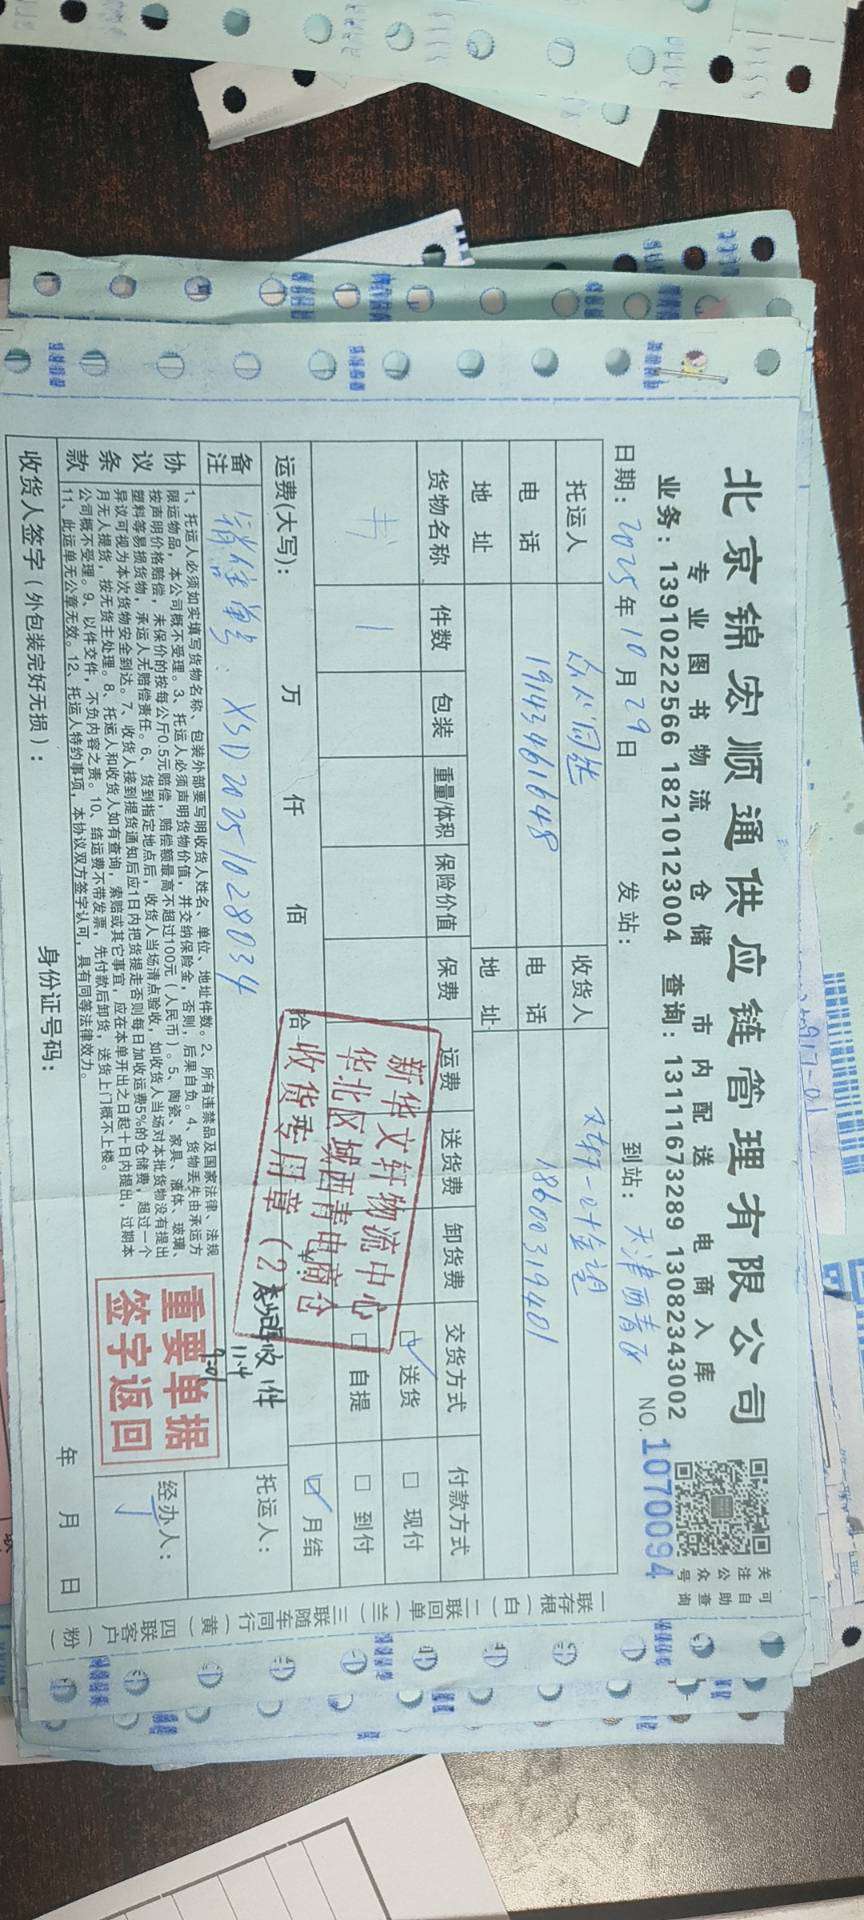 北京锦宏顺通供应链管理有限公司
专业图书物流 仓储 市内配送 电商入库
业务：13910222566 18210123004 查询：13111673289 13082343002
可自助查询
关注公众号
日期：2025年10月29日 发站： 到站：天津西青区 NO.1070094
托运人 众心同达 收货人 文轩-叶金望
电话 19143461648 电话 18600319401
地址 地址
货物名称 件数 包装 重量/体积 保险价值 保费 运费 送货费 卸货费 交货方式 付款方式
书 1 ☑送货 □现付
□自提 □到付
☑月结
运费(大写)： 万 仟 佰 拾
新华文轩物流中心
华北区域西青电商仓
收货专用章（2）
备注 销售单号：XSD20251028034
收1件
11.4
托运人：
协议条款
1、托运人必须如实填写货物名称、包装外部要写明收货人姓名、单位、地址件数。2、所有违禁品及国家法律、法规
限运物品，本公司概不受理。3、托运人必须声明货物价值，并交纳保险金，否则，后果自负。4、货物丢失由承运方
按声明价格赔偿，未保价的按每公斤0.5元赔偿，赔偿额最高不超过100元（人民币）。5、陶瓷、家具、液体、玻璃、
塑料等易损货物，承运人无赔偿责任。6、货到指定地点后，收货人当场清点验收，如收货人当场对本批货物没有提出
异议可视为本次货物安全到达。7、收货人接到提货通知后应1日内把货提走否则每日加收运费5%的仓储费，超过一个
月无人提货，按无货主处理。8、托运人和收货人如有查询，索赔或其它事宜，应在本单开出之日起十日内提出，过期本
公司概不受理。9、以件交件，不负内容之责。10、结运费不带发票，先付款后卸货，送货上门概不上楼。
11、此运单无公章无效。12、托运人特约事项，本协议双方签字认可，具有同等法律效力。
重要单据
签字返回
经办人：
收货人签字（外包装完好无损）： 身份证号码： 年 月 日
一联存根（白） 二联回单（兰） 三联随车同行（黄） 四联客户（粉）